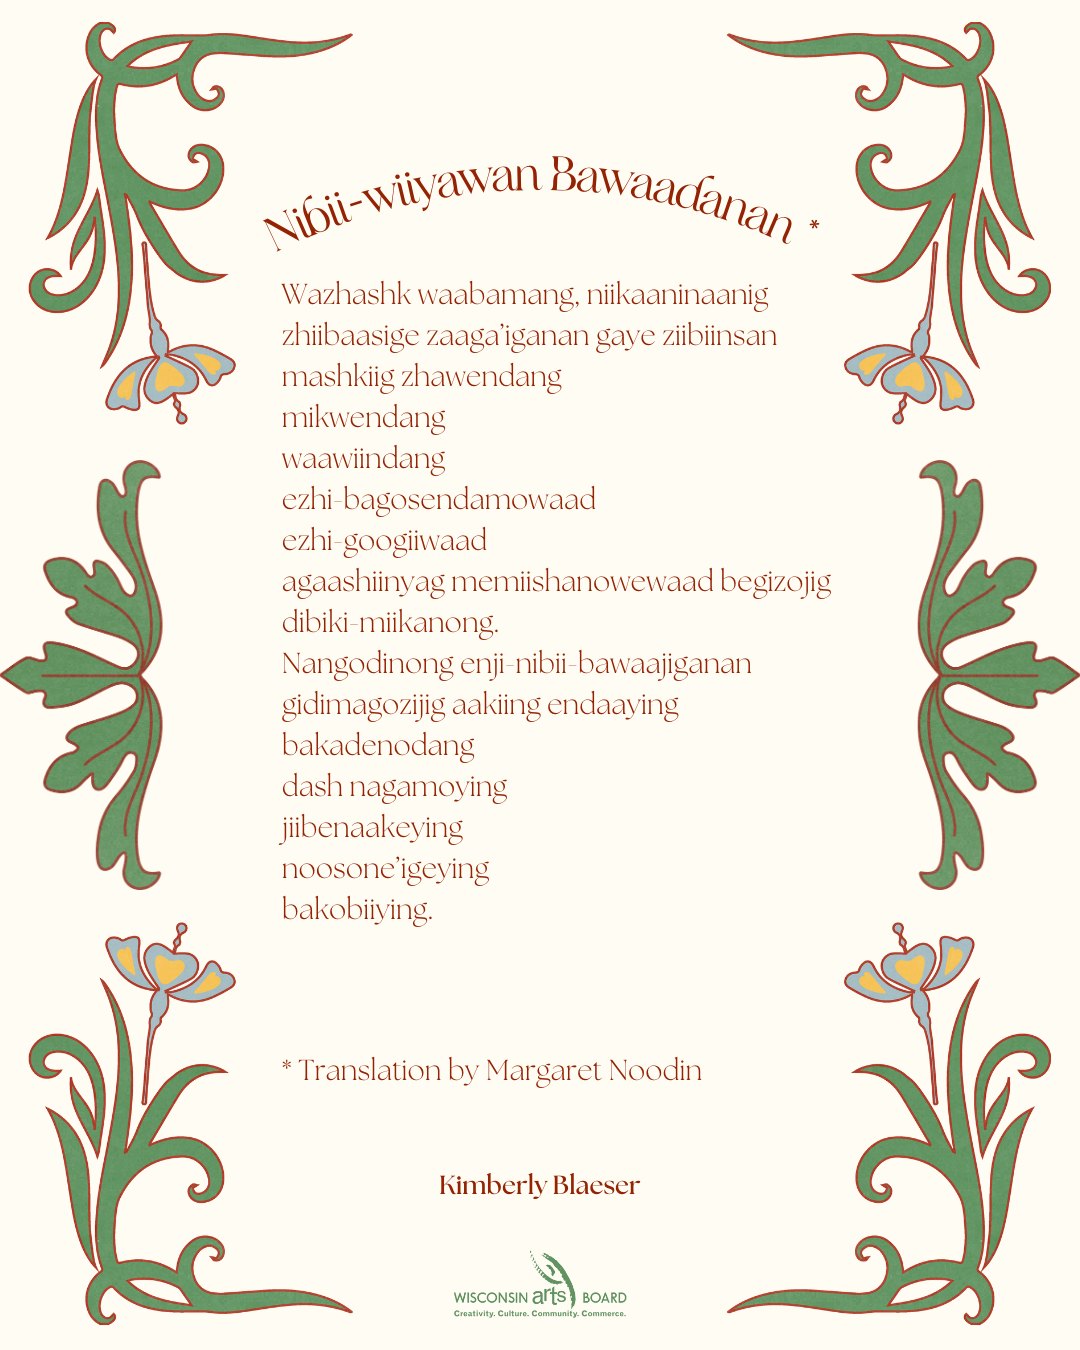 Nibii-wiiyawan Bawaadanan *
Wazhashk waabamang, niikaaninaanig
zhiibaasige zaaga’iganan gaye ziibiinsan
mashkiig zhawendang
mikwendang
waawiindang
ezhi-bagosendamowaad
ezhi-googiiwaad
agaashiinyag memiishanowewaad begizojig
dibiki-miikanong.
Nangodinong enji-nibii-bawaajiganan
gidimagozijig aakiing endaaying
bakadenodang
dash nagamoying
jiibenaakeying
noosone’igeying
bakobiiying.
* Translation by Margaret Noodin
Kimberly Blaeser
WISCONSIN arts BOARD
Creativity. Culture. Community. Commerce.